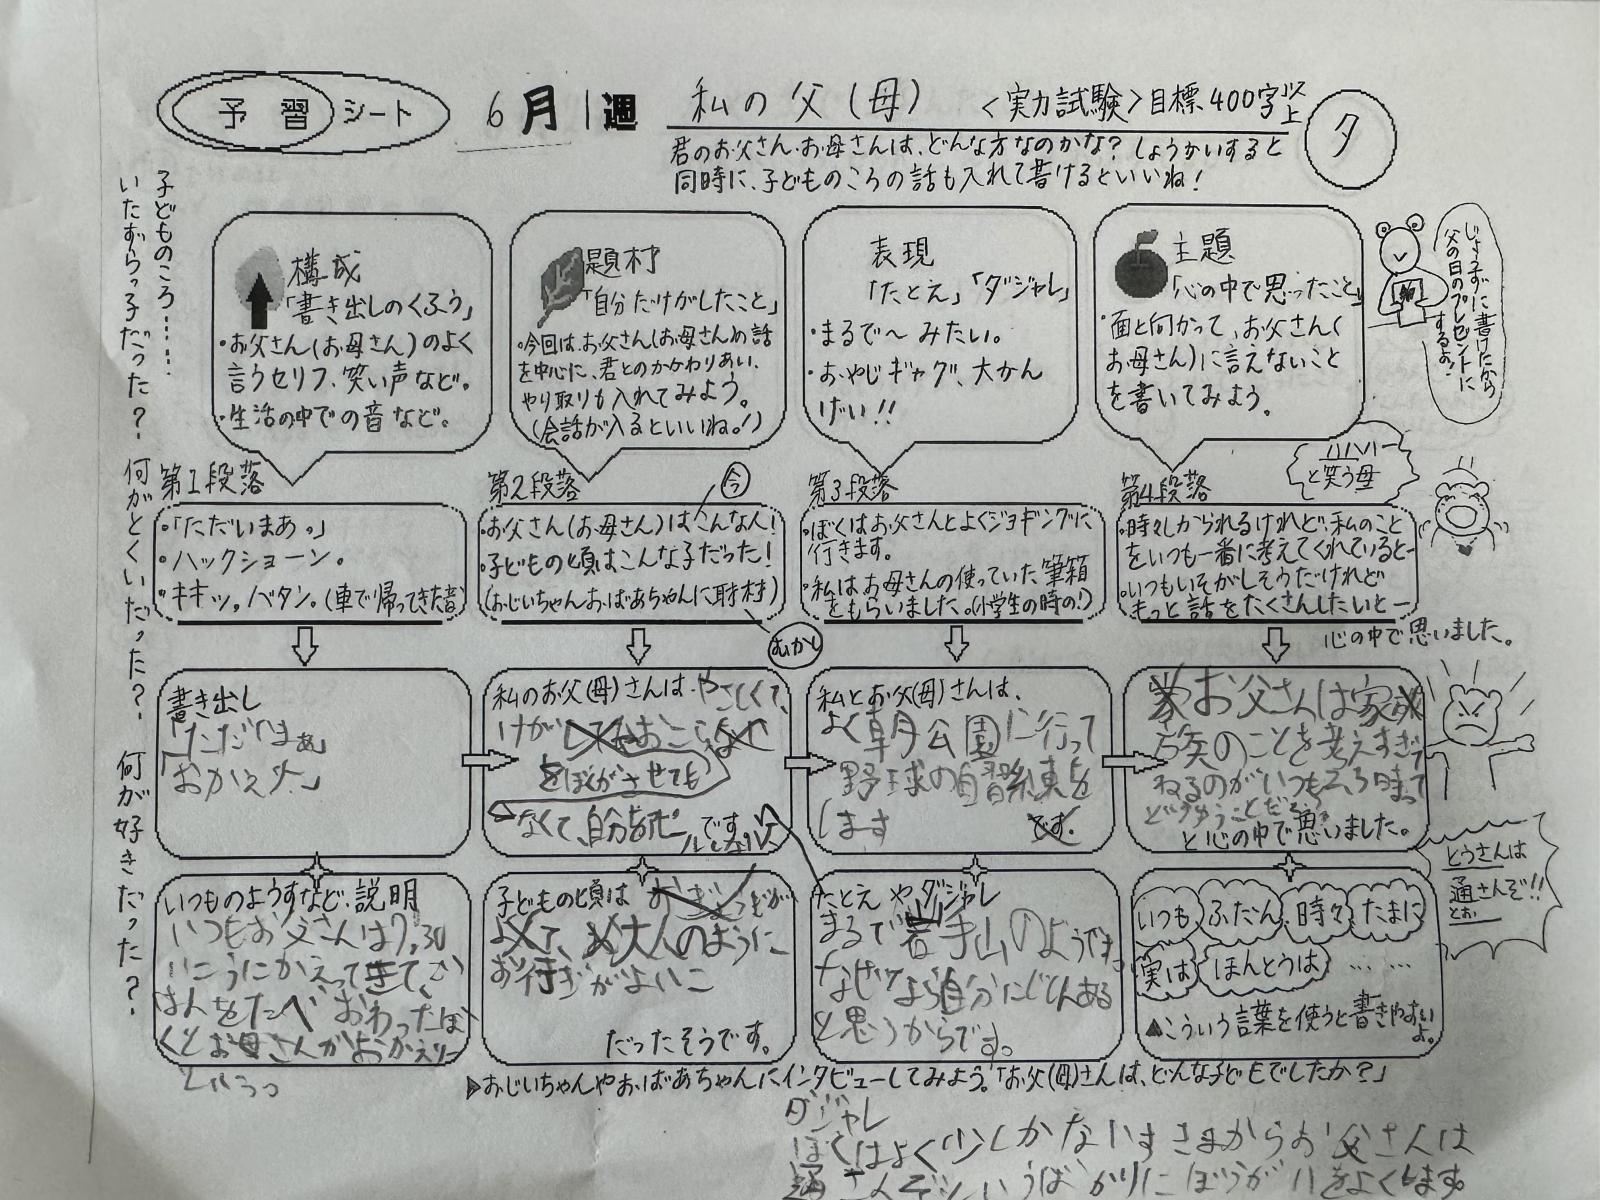 予習シート
6月1週
私の父(母)
<実力試験>目標400字以上
タ
君のお父さん・お母さんは、どんな方なのかな? しょうかいすると
同時に、子どものころの話も入れて書けるといいね!
子どものころ……
いたずらっ子だった?
何がとくいだった?
何が好きだった?
構成
「書き出しのくふう」
・お父さん(お母さん)のよく
言うセリフ、笑い声など。
・生活の中での音など。
題材
「自分だけがしたこと」
・今回は、お父さん(お母さん)の話
を中心に、君とのかかわりあい、
やり取りも入れてみよう。
(会話が入るといいね。!)
表現
「たとえ」「ダジャレ」
・まるで〜みたい。
・おやじギャグ、大かん
げい!!
主題
「心の中で思ったこと」
・面と向かって、お父さん(
お母さん)に言えないこと
を書いてみよう。
じょうずに書けたら
父の日のプレゼントに
するよ?
ハハハハー
と笑う母
第1段落
・「ただいまあ。」
・ハックショーン。
・キキッ。バタン。(車で帰ってきた音)
第2段落
今
・お父さん(お母さん)はこんな人!
・子どもの頃はこんな子だった!
(おじいちゃんおばあちゃんに取材)
むかし
第3段落
・ぼくはお父さんとよくジョギングに
行きます。
・私はお母さんの使っていた筆箱
をもらいました。(小学生の時の!)
第4段落
・時々しかられるけれど、私のこと
をいつも一番に考えてくれていると―
・いつもいそがしそうだけれど
もっと話をたくさんしたいと―
心の中で思いました。
書き出し
「ただいまぁ」
「おかえりー」
私のお父(母)さんは、やさしくて、
けが
をぼくがさせても
おこら
なくて、自分
です
私とお父(母)さんは、
よく朝公園に行って
野球の自習練を
します
です。
お父さんは家
族のことを考えすぎて
ねるのがいつもそろ時まって
どうゆうことだろう
と心の中で思いました。
いつものようすなど・説明
いつもお父さんは7,30
いこうにかえってきて、ご
はんをたべおわったぼ
くとお母さんがおかえりー
という。
子どもの頃は
大人のように
お行ぎがよいこ
だったそうです。
たとえやダジャレ
まるで岩手山のようです。
なぜなら自分にじしんある
と思うからです。
いつも ふだん 時々 たまに
実は ほんとうは ……
▲こういう言葉を使うと書きやすい
よ。
とうさんは
通さんぞ!!
とお
▶おじいちゃんやおばあちゃんにインタビューしてみよう。「お父(母)さんは、どんな子どもでしたか?」
ダジャレ
ぼくはよく少しかないすきまからお父さんは
通さんぞといいうばかりにぼうがいをよくします。